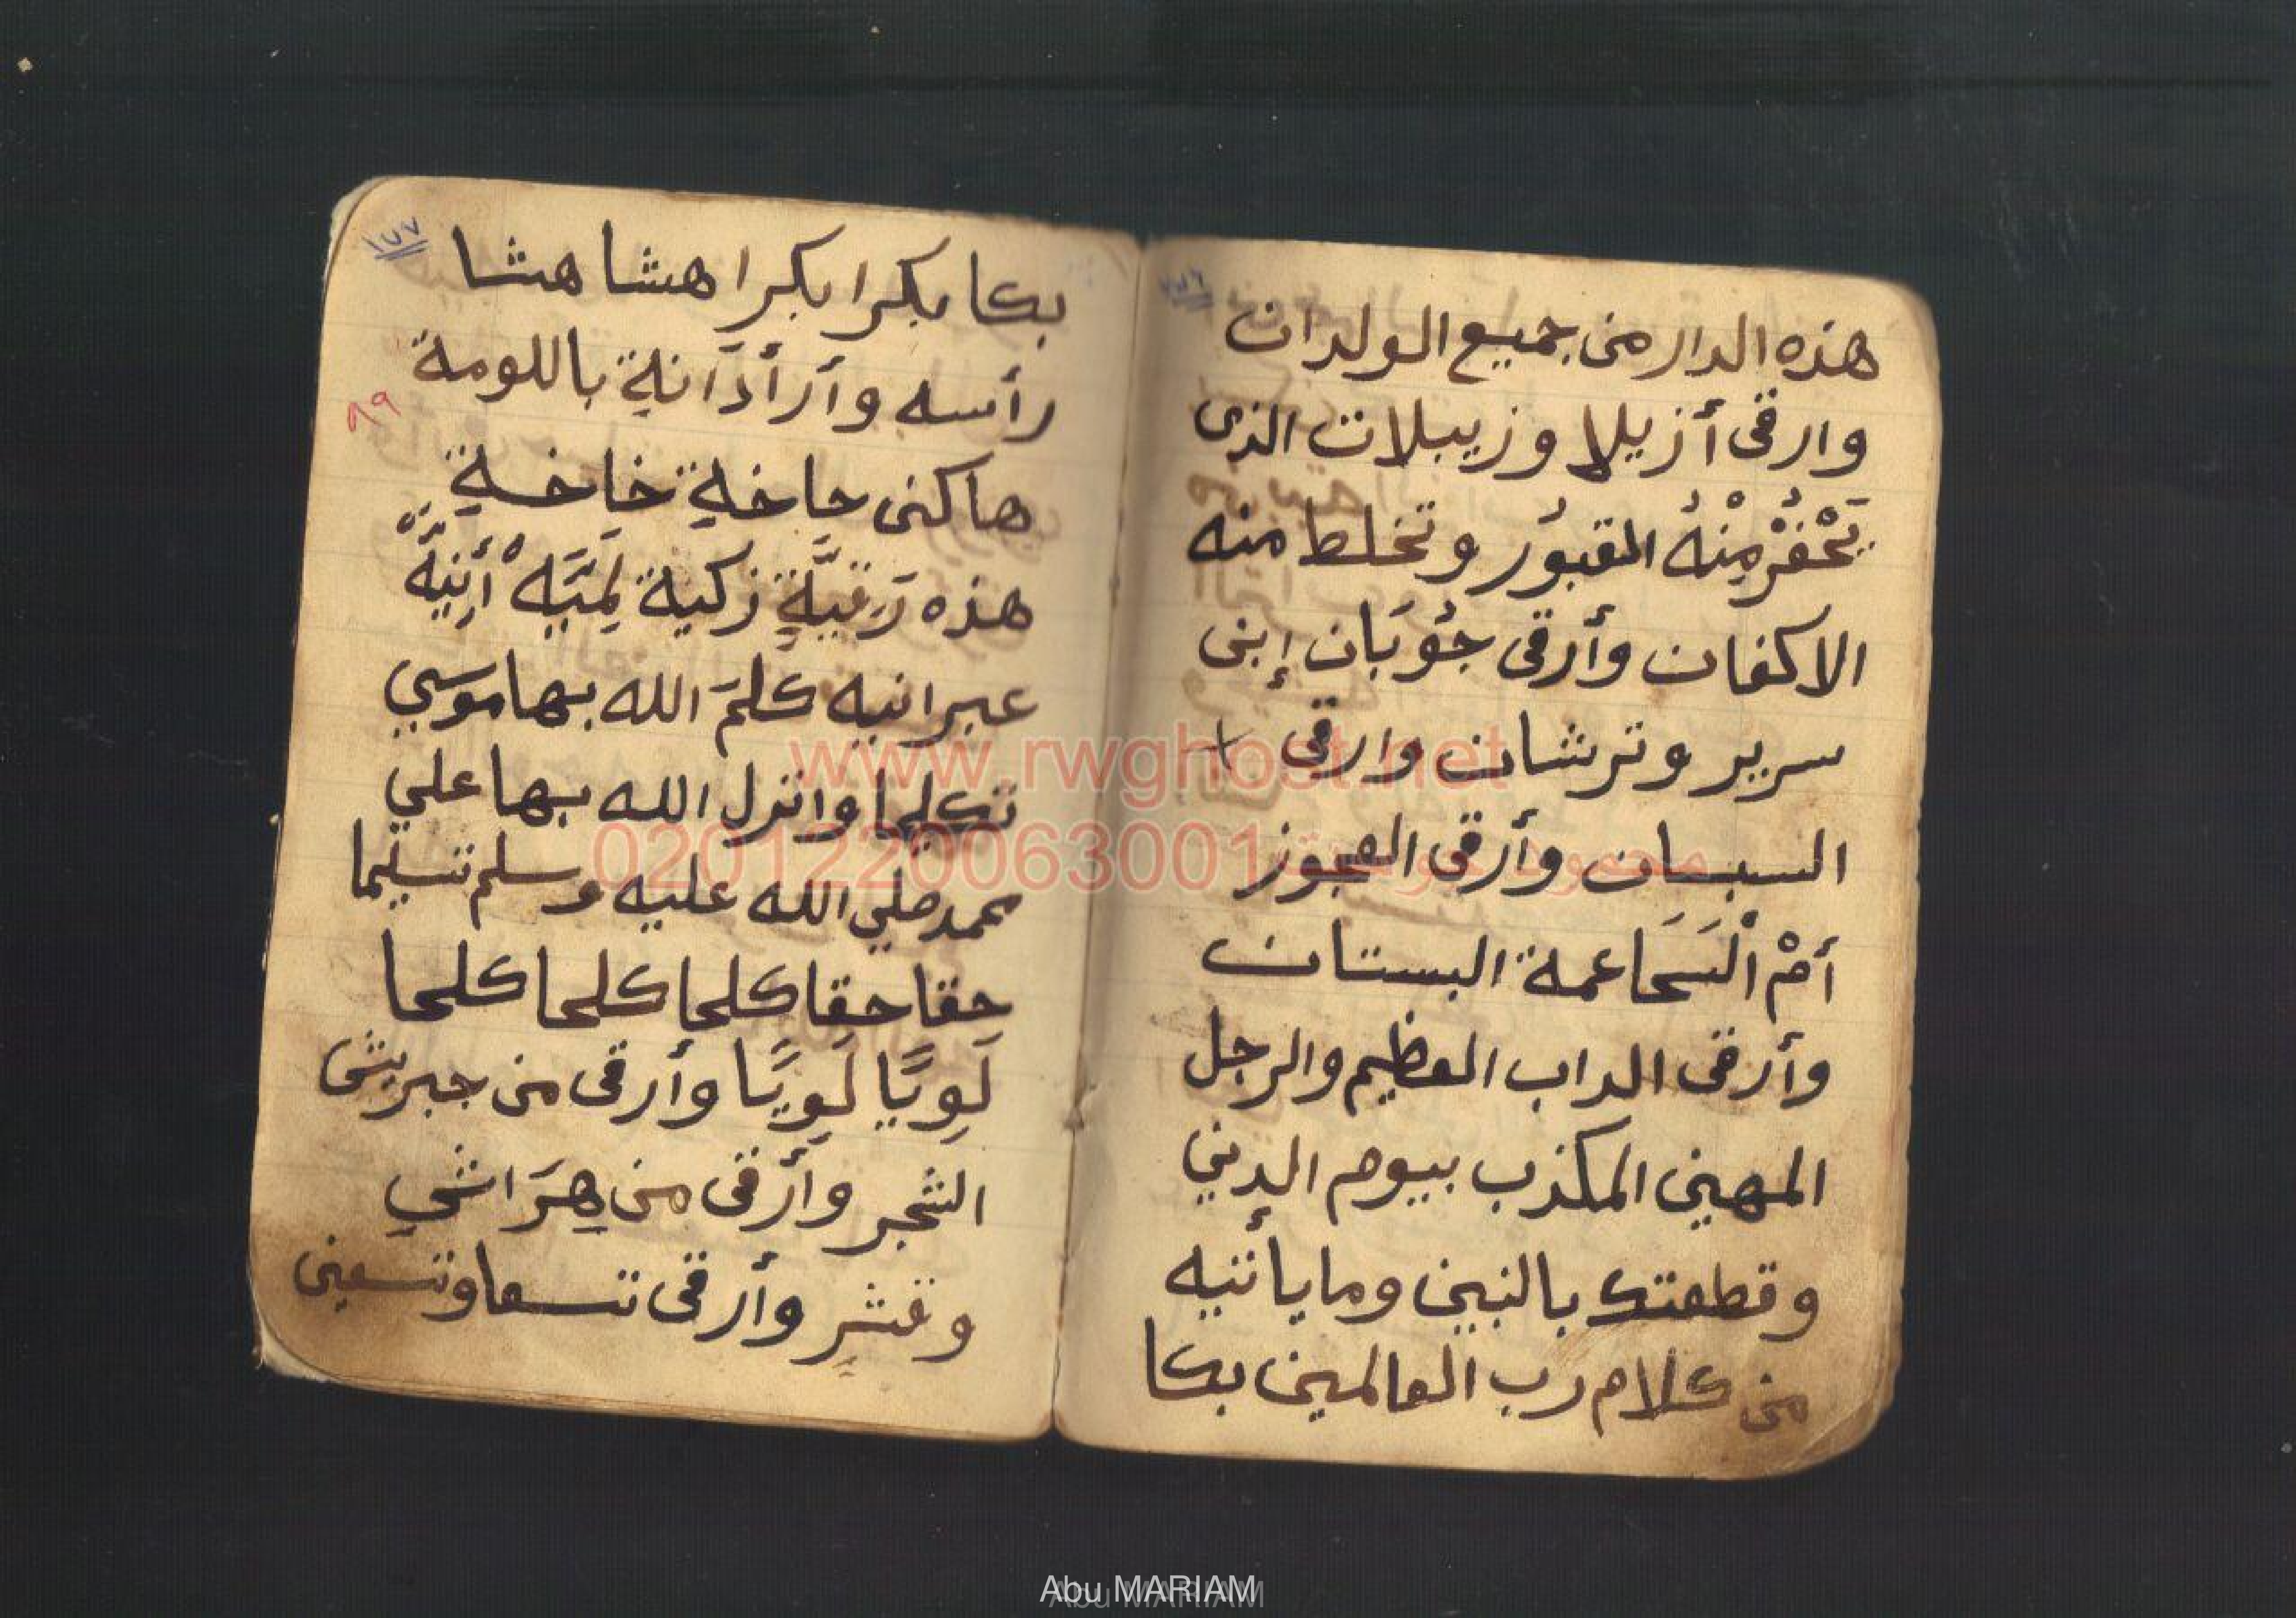 هذه الدار من جميع الولدان
وارقى أزيلا وزيبلات الذى
تَحْفُرْ مِنْهُ القبوُر وتخلط منه
الاكفان وأرقى جُوبَان إبنى
سرير وترشان وارقى +
السبسان وأرقى العجوز
أمْ الْسَحَا عمة البستان
وأرقى الداب العظيم والرجل
المهين المكذب بيوم الدين
وقطعتك بالنبين وما يأتيه
من كلام رب العالمين بكا
١٧٧
بكا بكرا بكرا هشا هشا
رأسه وأرأدَانةٍ باللومة
٨٩
هاكنى جاخةٍ خاخةٍ
هذه رَقيَّةٍ زكية
عبرانيه كلمَ الله بها موَسي
تكليما وانزل الله بها علي
محمد صلي الله عليه وسلم تسليما
حقا حقا كلحا كلحا كلحا
لَوِيًا لَوِيًا وأرقى من جبريش
الشجر وأرقى من هِرَاشي
وقشر وأرقى تسعا وتسعين
www.rwghost.net
0201220063001
Abu MARIAM